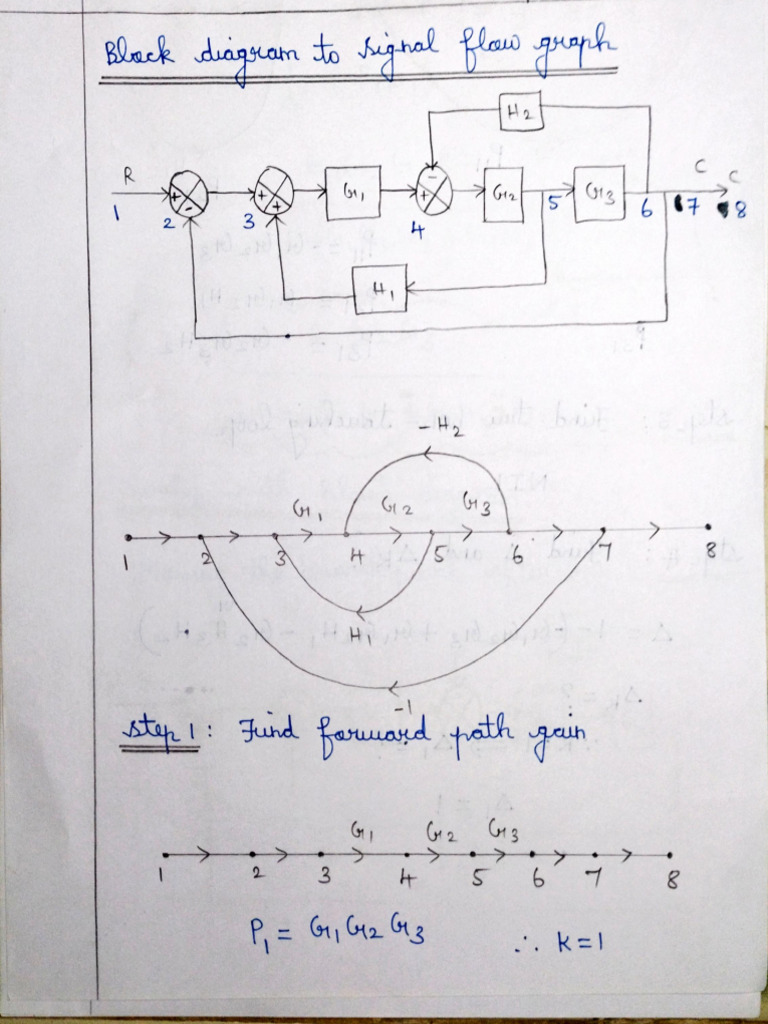 Block diagram to signal flow graph
H2
R + - + + G1 + - G2 G3 C C
1 2 3 4 5 6 7 8
H1
-H2
G1 G2 G3
1 2 3 4 5 6 7 8
H1
-1
step 1: Find forward path gain
G1 G2 G3
1 2 3 4 5 6 7 8
P1 = G1 G2 G3 ∴ K=1